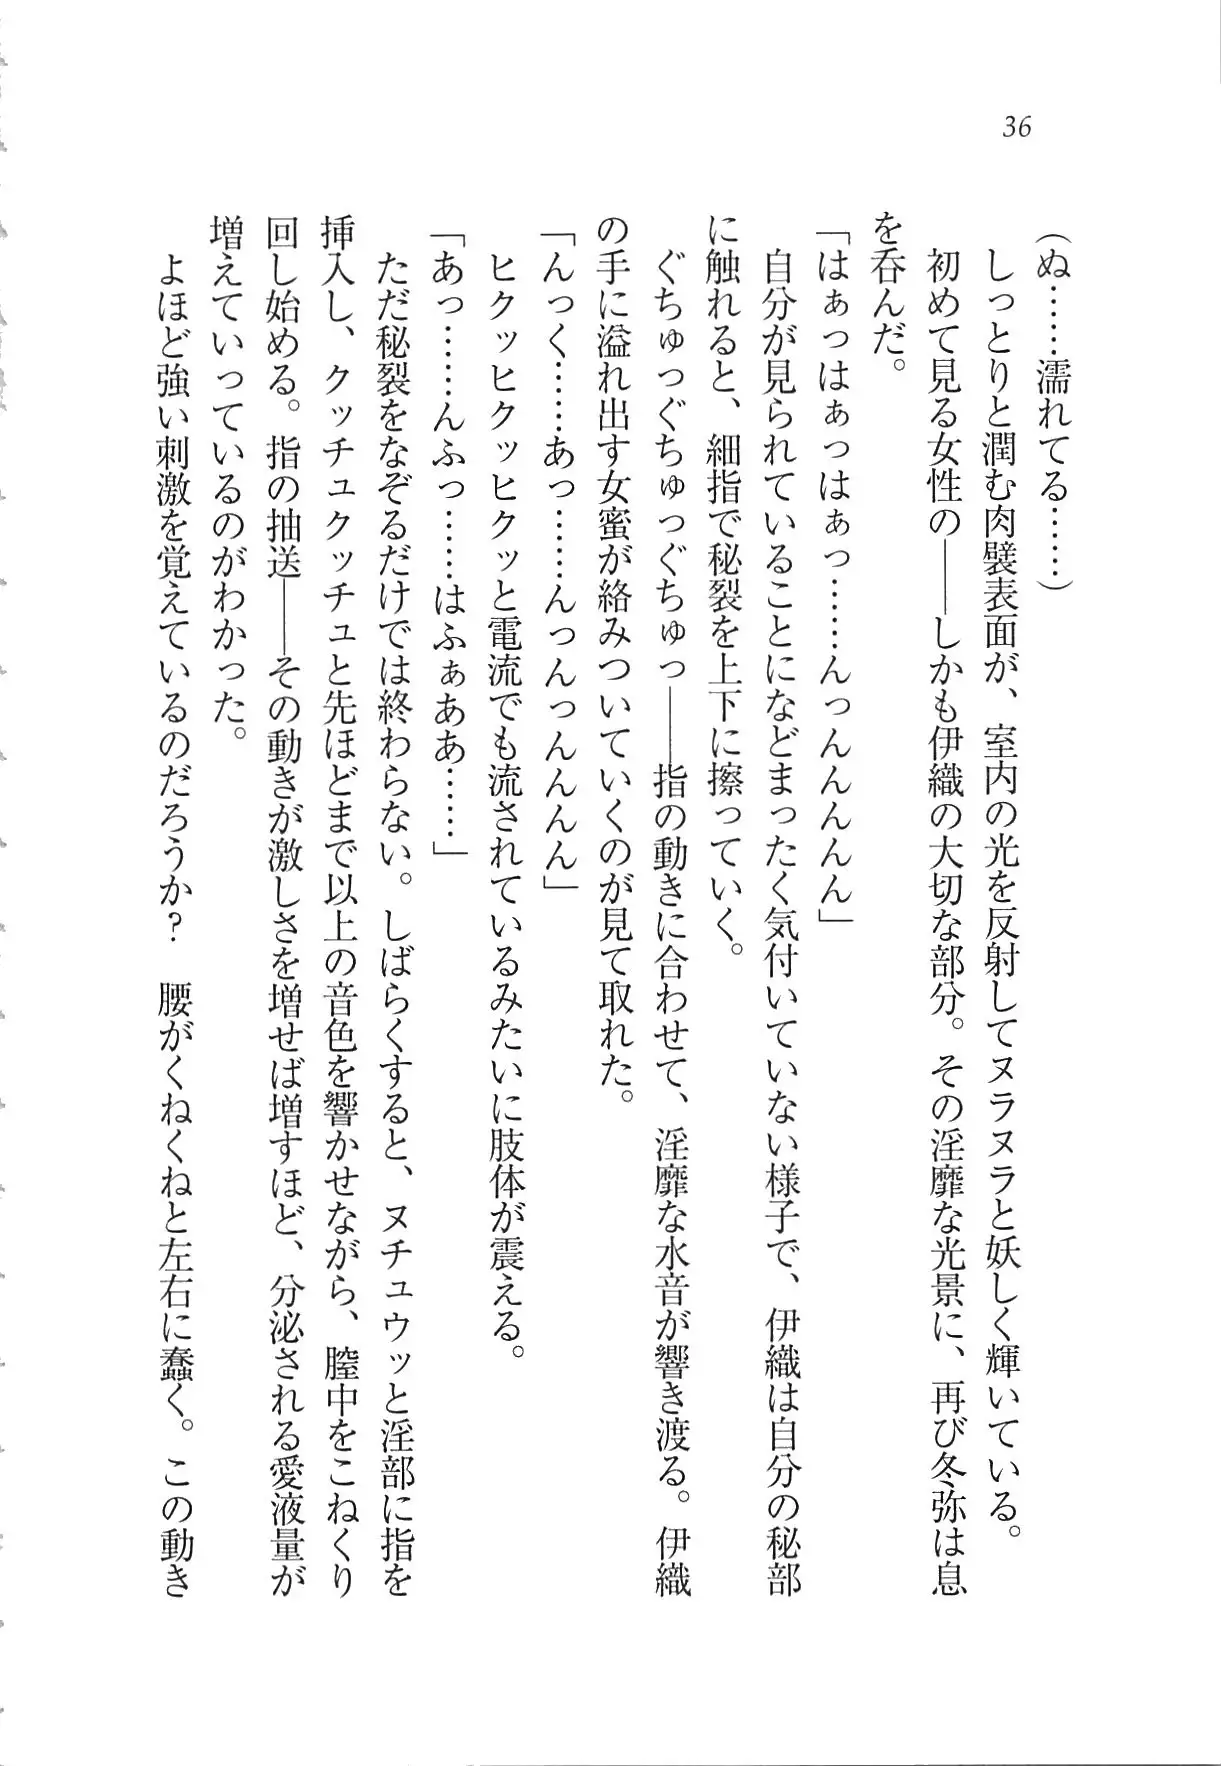 36
(ぬ……濡れてる……)
しっとりと潤む肉襞表面が、室内の光を反射してヌラヌラと妖しく輝いている。
初めて見る女性の――しかも伊織の大切な部分。その淫靡な光景に、再び冬弥は息
を呑んだ。
「はぁっはぁっはぁっ……んっんんんんん」
自分が見られていることになどまったく気付いていない様子で、伊織は自分の秘部
に触れると、細指で秘裂を上下に擦っていく。
ぐちゅっぐちゅっぐちゅっ――指の動きに合わせて、淫靡な水音が響き渡る。伊織
の手に溢れ出す女蜜が絡みついていくのが見て取れた。
「んっく……あっ………んっんっんんんん」
ヒクッヒクッヒクッと電流でも流されているみたいに肢体が震える。
「あっ………んふっ……はふぁああ……」
ただ秘裂をなぞるだけでは終わらない。しばらくすると、ヌチュウッと淫部に指を
挿入し、クッチュクッチュと先ほどまで以上の音色を響かせながら、膣中をこねくり
回し始める。指の抽送――その動きが激しさを増せば増すほど、分泌される愛液量が
増えていっているのがわかった。
よほど強い刺激を覚えているのだろうか?　腰がくねくねと左右に蠢く。この動き